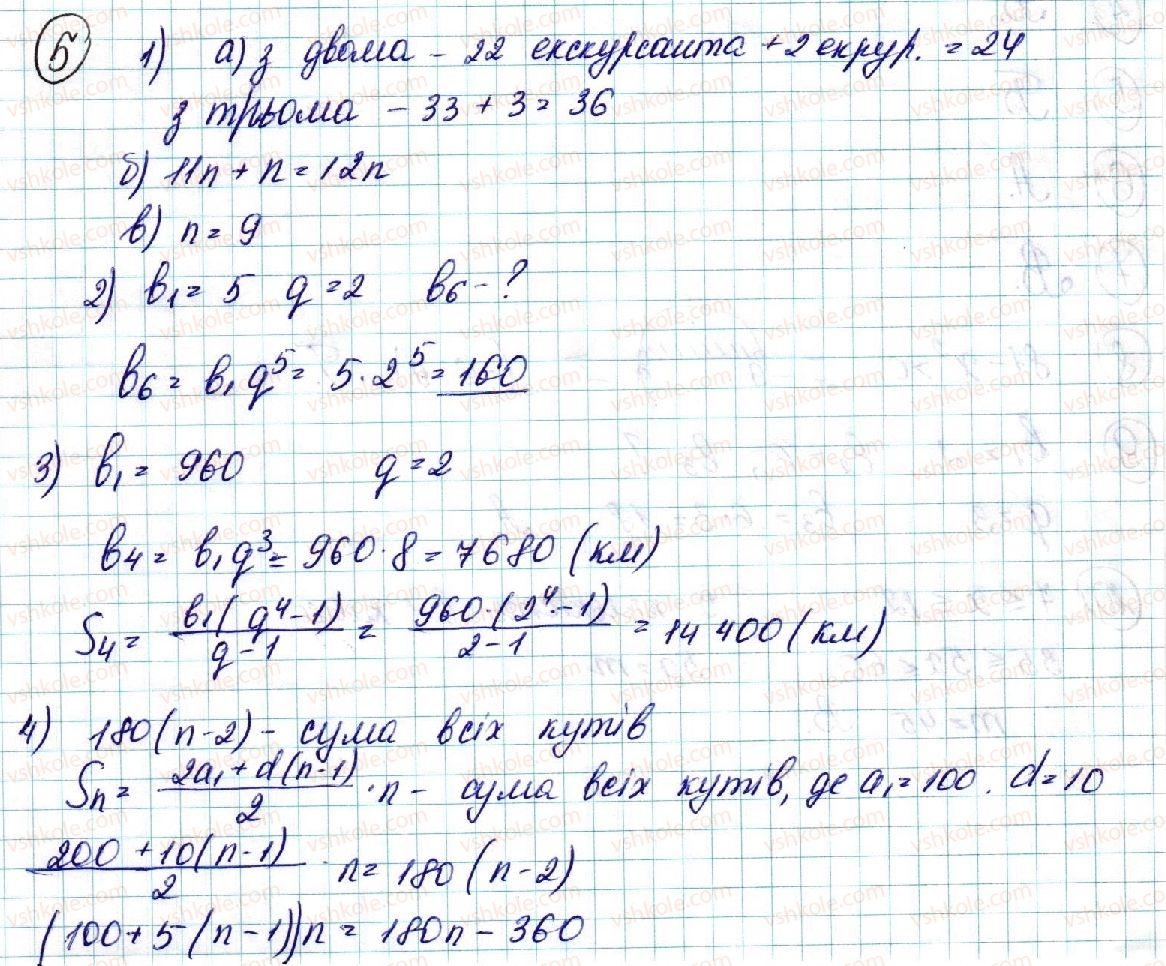 5
1) а) з двома - 22 екскурсанта + 2 екрур. = 24
з трьома - 33 + 3 = 36
б) 11n + n = 12n
в) n = 9
2) b₁ = 5 q = 2 b₆ - ?
b₆ = b₁q⁵ = 5·2⁵ = 160
3) b₁ = 960 q = 2
b₄ = b₁q³ = 960·8 = 7680 (км)
S₄ = b₁(q⁴-1)/(q-1) = 960·(2⁴-1)/(2-1) = 14 400 (км)
4) 180(n-2) - сума всіх кутів
Sn = (2a₁+d(n-1))/2 · n - сума всіх кутів, де a₁=100. d=10
(200+10(n-1))/2 · n = 180(n-2)
(100+5(n-1))n = 180n - 360
vshkole.com